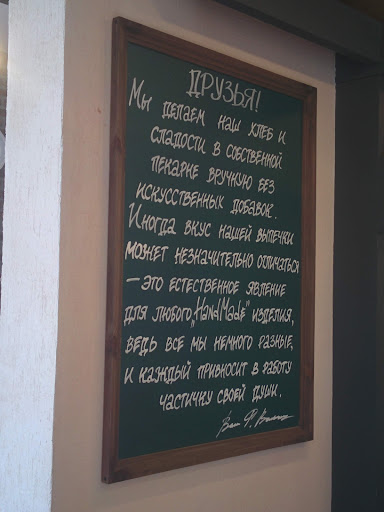 ДРУЗЬЯ!
МЫ ДЕЛАЕМ НАШ ХЛЕБ И
СЛАДОСТИ В СОБСТВЕННОЙ
ПЕКАРНЕ ВРУЧНУЮ БЕЗ
ИСКУССТВЕННЫХ ДОБАВОК.
ИНОГДА ВКУС НАШЕЙ ВЫПЕЧКИ
МОЖЕТ НЕЗНАЧИТЕЛЬНО ОТЛИЧАТЬСЯ
— ЭТО ЕСТЕСТВЕННОЕ ЯВЛЕНИЕ
ДЛЯ ЛЮБОГО „HandMade" ИЗДЕЛИЯ,
ВЕДЬ ВСЕ МЫ НЕМНОГО РАЗНЫЕ,
И КАЖДЫЙ ПРИВНОСИТ В РАБОТУ
ЧАСТИЧКУ СВОЕЙ ДУШИ.
Ваш Ф.